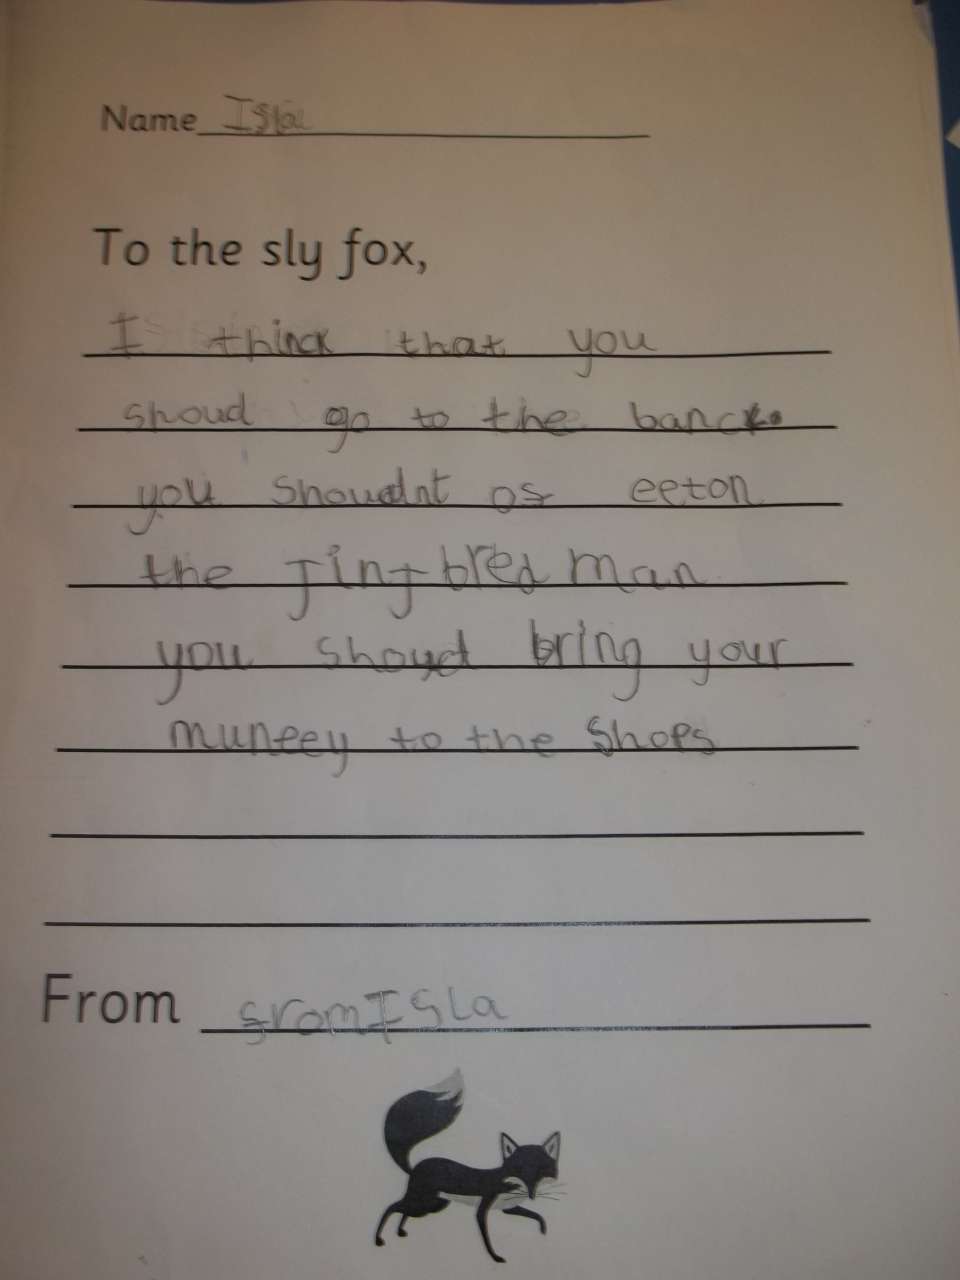 Name Isla
To the sly fox,
I thinck that you
shoud go to the banck.
you shoudnt of eeton
the jinjbred man
you shoud bring your
muneey to the shops
From from Isla